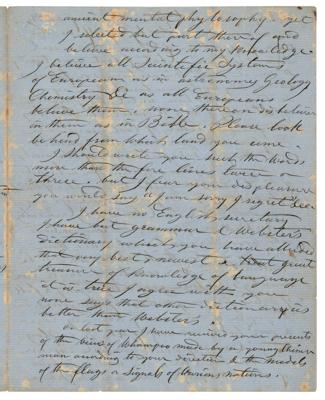 ancient mental phylosophy. yet
I selected but part there of and
believe according to my knowledge.
I believe all Scientific Systems
of European as in astronomy Geology
Chemistry &c as all Europeans
believe them, none thereon disbelieve
in them as in Bible. Please look
behind from which land you come.
I should write you such the words
more than the fore lines twice or
three. but I fear your displeasure
you would say I am sorry I regret &c
I have no English secretary
I have but grammar & Webster's
dictionary which you have alluded
that very best & newest & great
treasure of knowledge of language
it is true I agree with you
none says that other dictionary is
better than Webster's.
on last year I have received your presents
of the views of Whampoo made by a young chinese
man acording to your direction & the models
of the flags or signals of various nations.